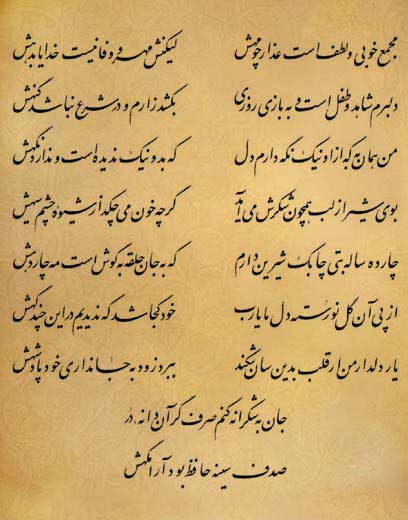 مجمع خوبی و لطف است عذار چو مهش لیکنش مهر و وفا نیست خدایا بدهش
دلبرم شاهد و طفل است و به بازی روزی بکشد زارم و در شرع نباشد گنهش
من همان به که از او نیک نگه دارم دل که بد و نیک ندیده است و ندارد نگهش
بوی شیر از لب همچون شکرش می آید گرچه خون می چکد از شیوه چشم سیهش
چارده ساله بتی چابک شیرین دارم که به جان حلقه به گوش است مه چاردهش
از پی آن گل نورسته دل ما یا رب خود کجا شد که ندیدیم در این چند گهش
یار دلدار من ار قلب بدین سان شکند ببرد زود به جانداری خود پادشهش
جان به شکرانه کنم صرف گر آن دانه در
صدف سینه حافظ بود آرامگهش